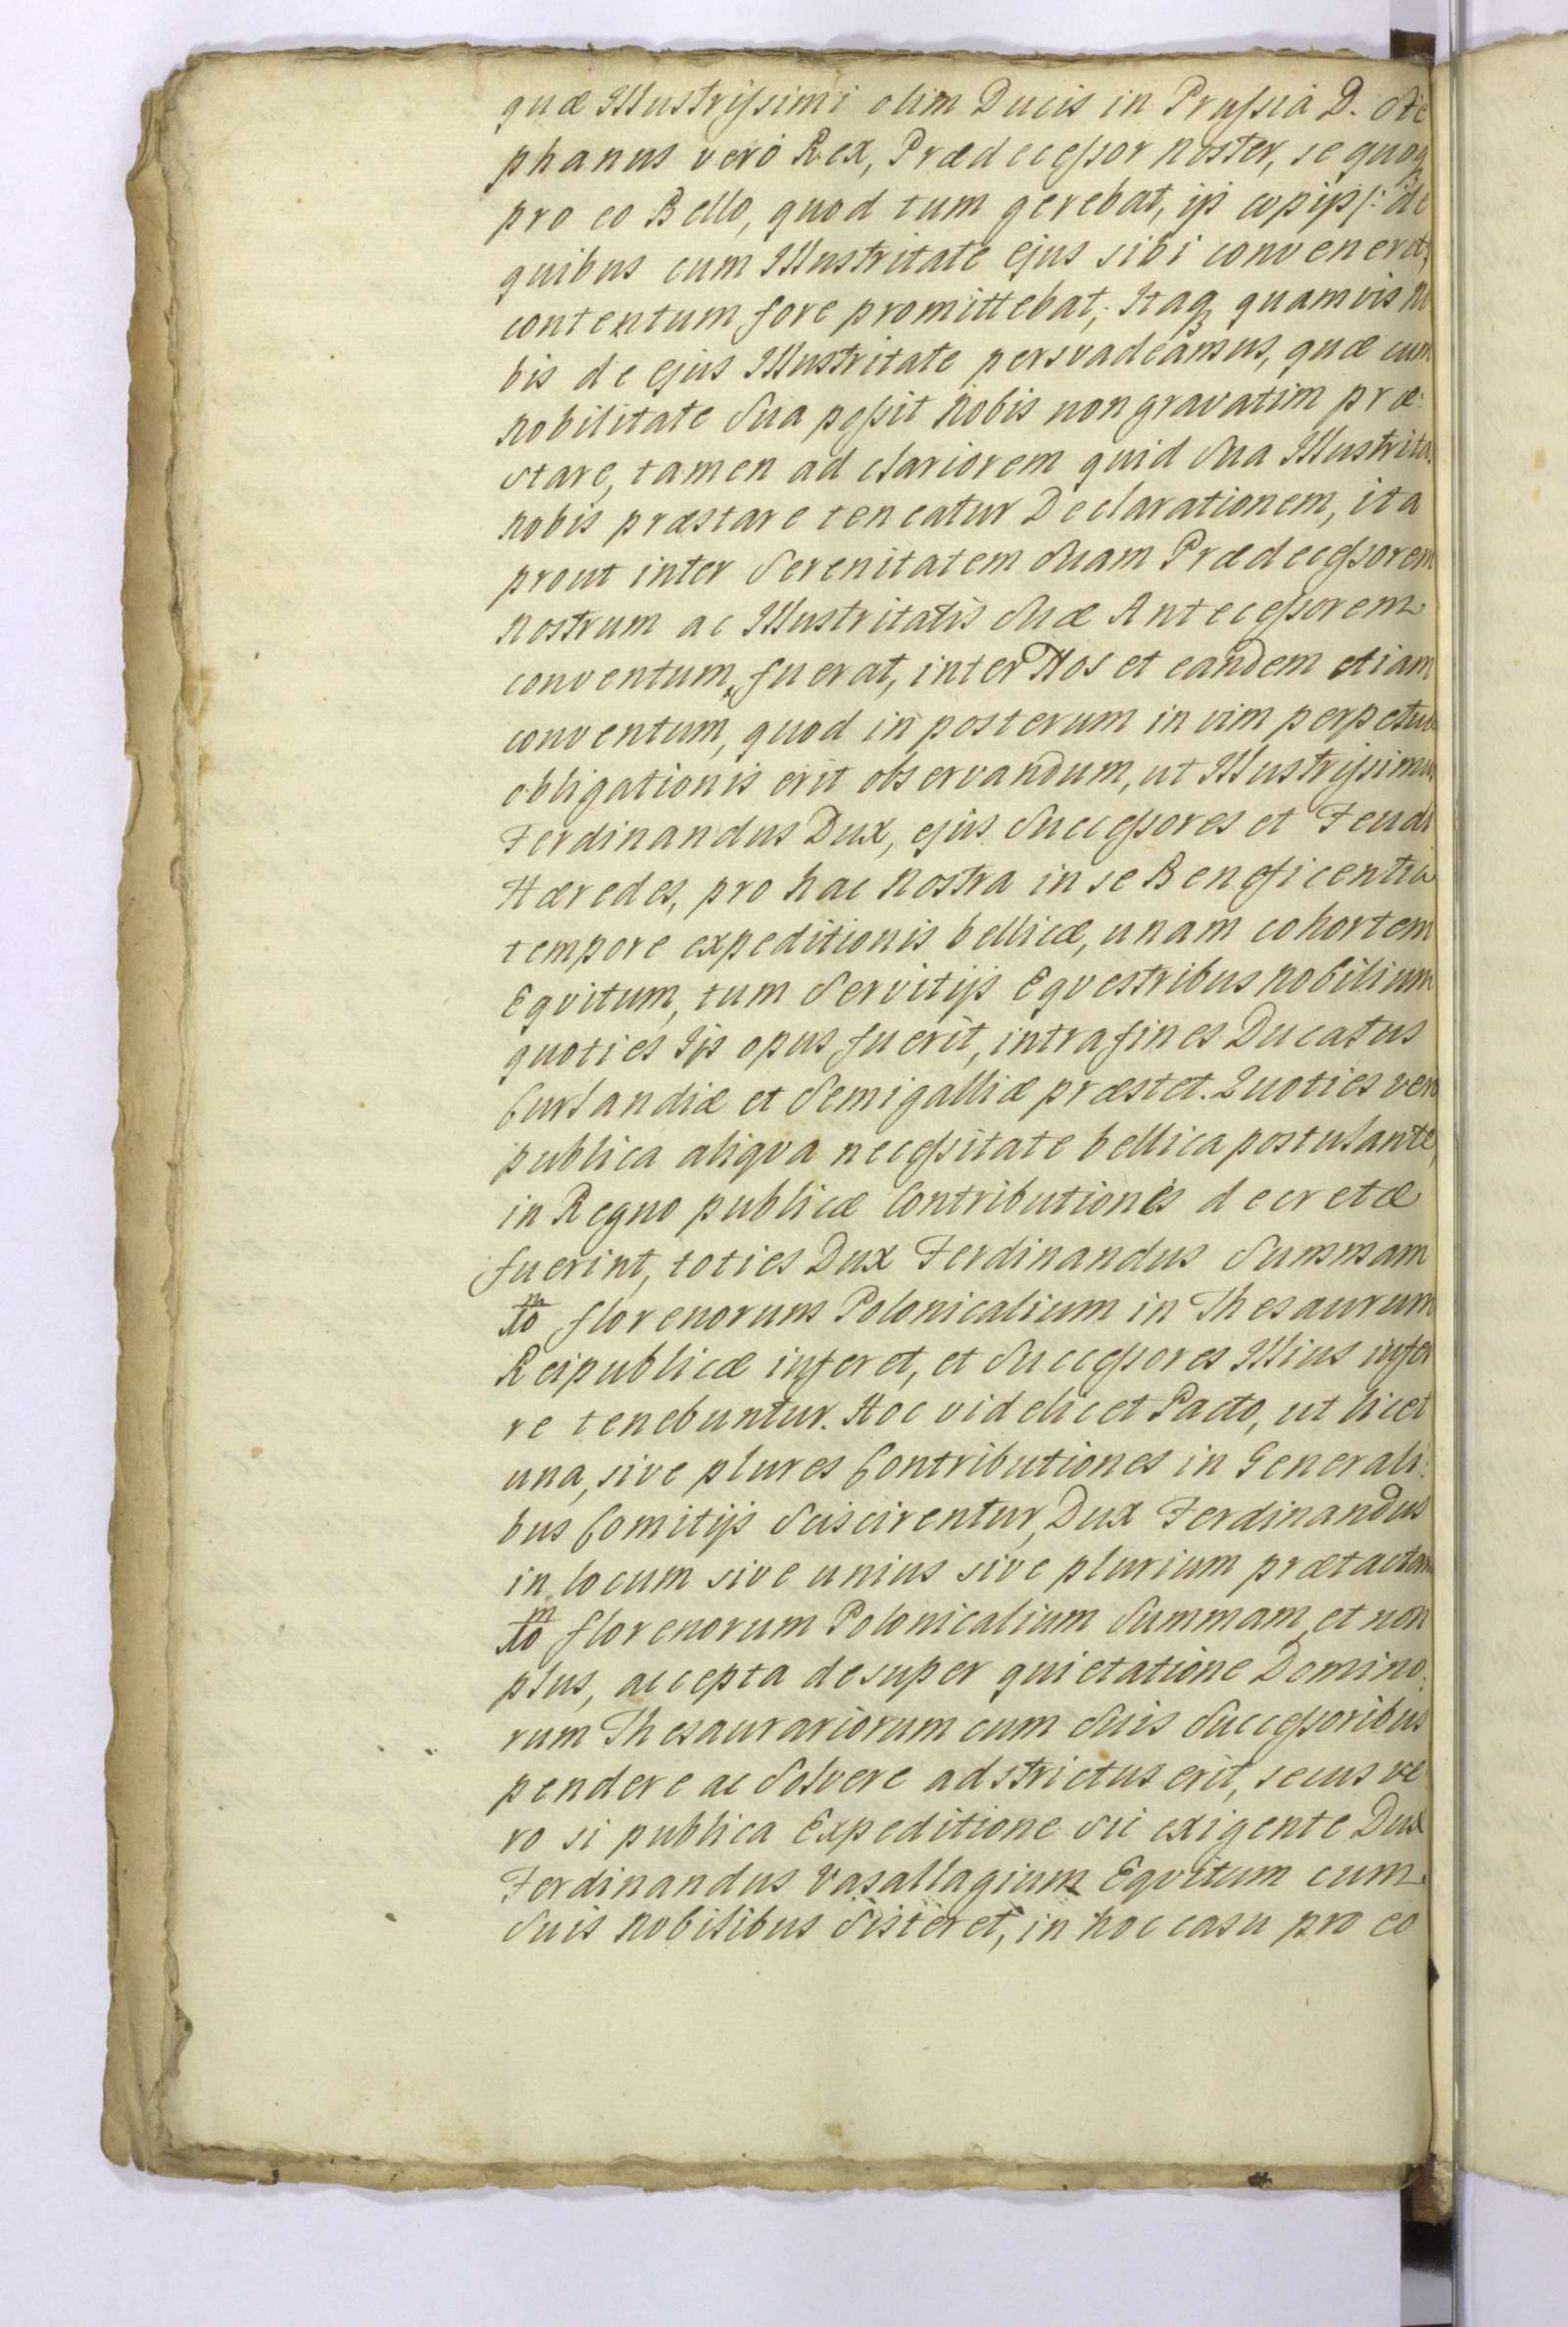 quæ Illustrissimi olim Ducis in Prussia D. Ste
phanus verò Rex, Prædecessor noster, se quoq
pro eo Bello, quod tum gerebat, ijs copijs de
quibus cum Illustritate ejus sibi convenerat,
contentum fore promittebat; Itaq quamvis no
bis de ejus Illustritate persvadeamus, quæ cum
nobilitate Sua possit nobis non gravatim præ:
stare, tamen ad clariorem quid Sua Illustrita:
nobis præstare teneatur Declarationem, ita
prout inter Serenitatem Suam Prædecessorem
nostrum ac Illustritatis Suæ Antecessorem
conventum fuerat, inter Nos et eandem etiam
conventum, quod in posterum in vim perpetuæ
obligationis erit observandum, ut Illustrissimus
Ferdinandus Dux, ejus Successores et Feudi
Hæredes, pro hac nostra in se Beneficentia
tempore expeditionis bellicæ, unam cohortem
Eqvitum, tum Servitijs Eqvestribus nobilium
quoties Ijs opus fuerit, intra fines Ducatus
Curlandiæ et Semigalliæ præstet. Quoties vero
publica aliqva necessitate bellica postulante,
in Regno publicæ Contributiones decretæ
fuerint, toties Dux Ferdinandus Summam
florenorum Polonicalium in Thesaurum
Reipublicæ inferet, et Successores Illius infer
re tenebuntur. Hoc videlicet Pacto, ut licet
una, sive plures Contributiones in Generali:
bus Comitijs Sciscirentur, Dux Ferdinandus
in locum sive unius sive plurium prætactam
florenorum Polonicalium Summam, et non
plus, accepta desuper quietatione Domino:
rum Thesaurariorum cum Suis Successoribus
pendere ac Solvere adstrictus erit, secus ve
ro si publica Expeditione Sic exigente Dux
Ferdinandus Vasallagium Eqvitum cum
Suis Nobilibus Sisteret, in hoc casu pro eo